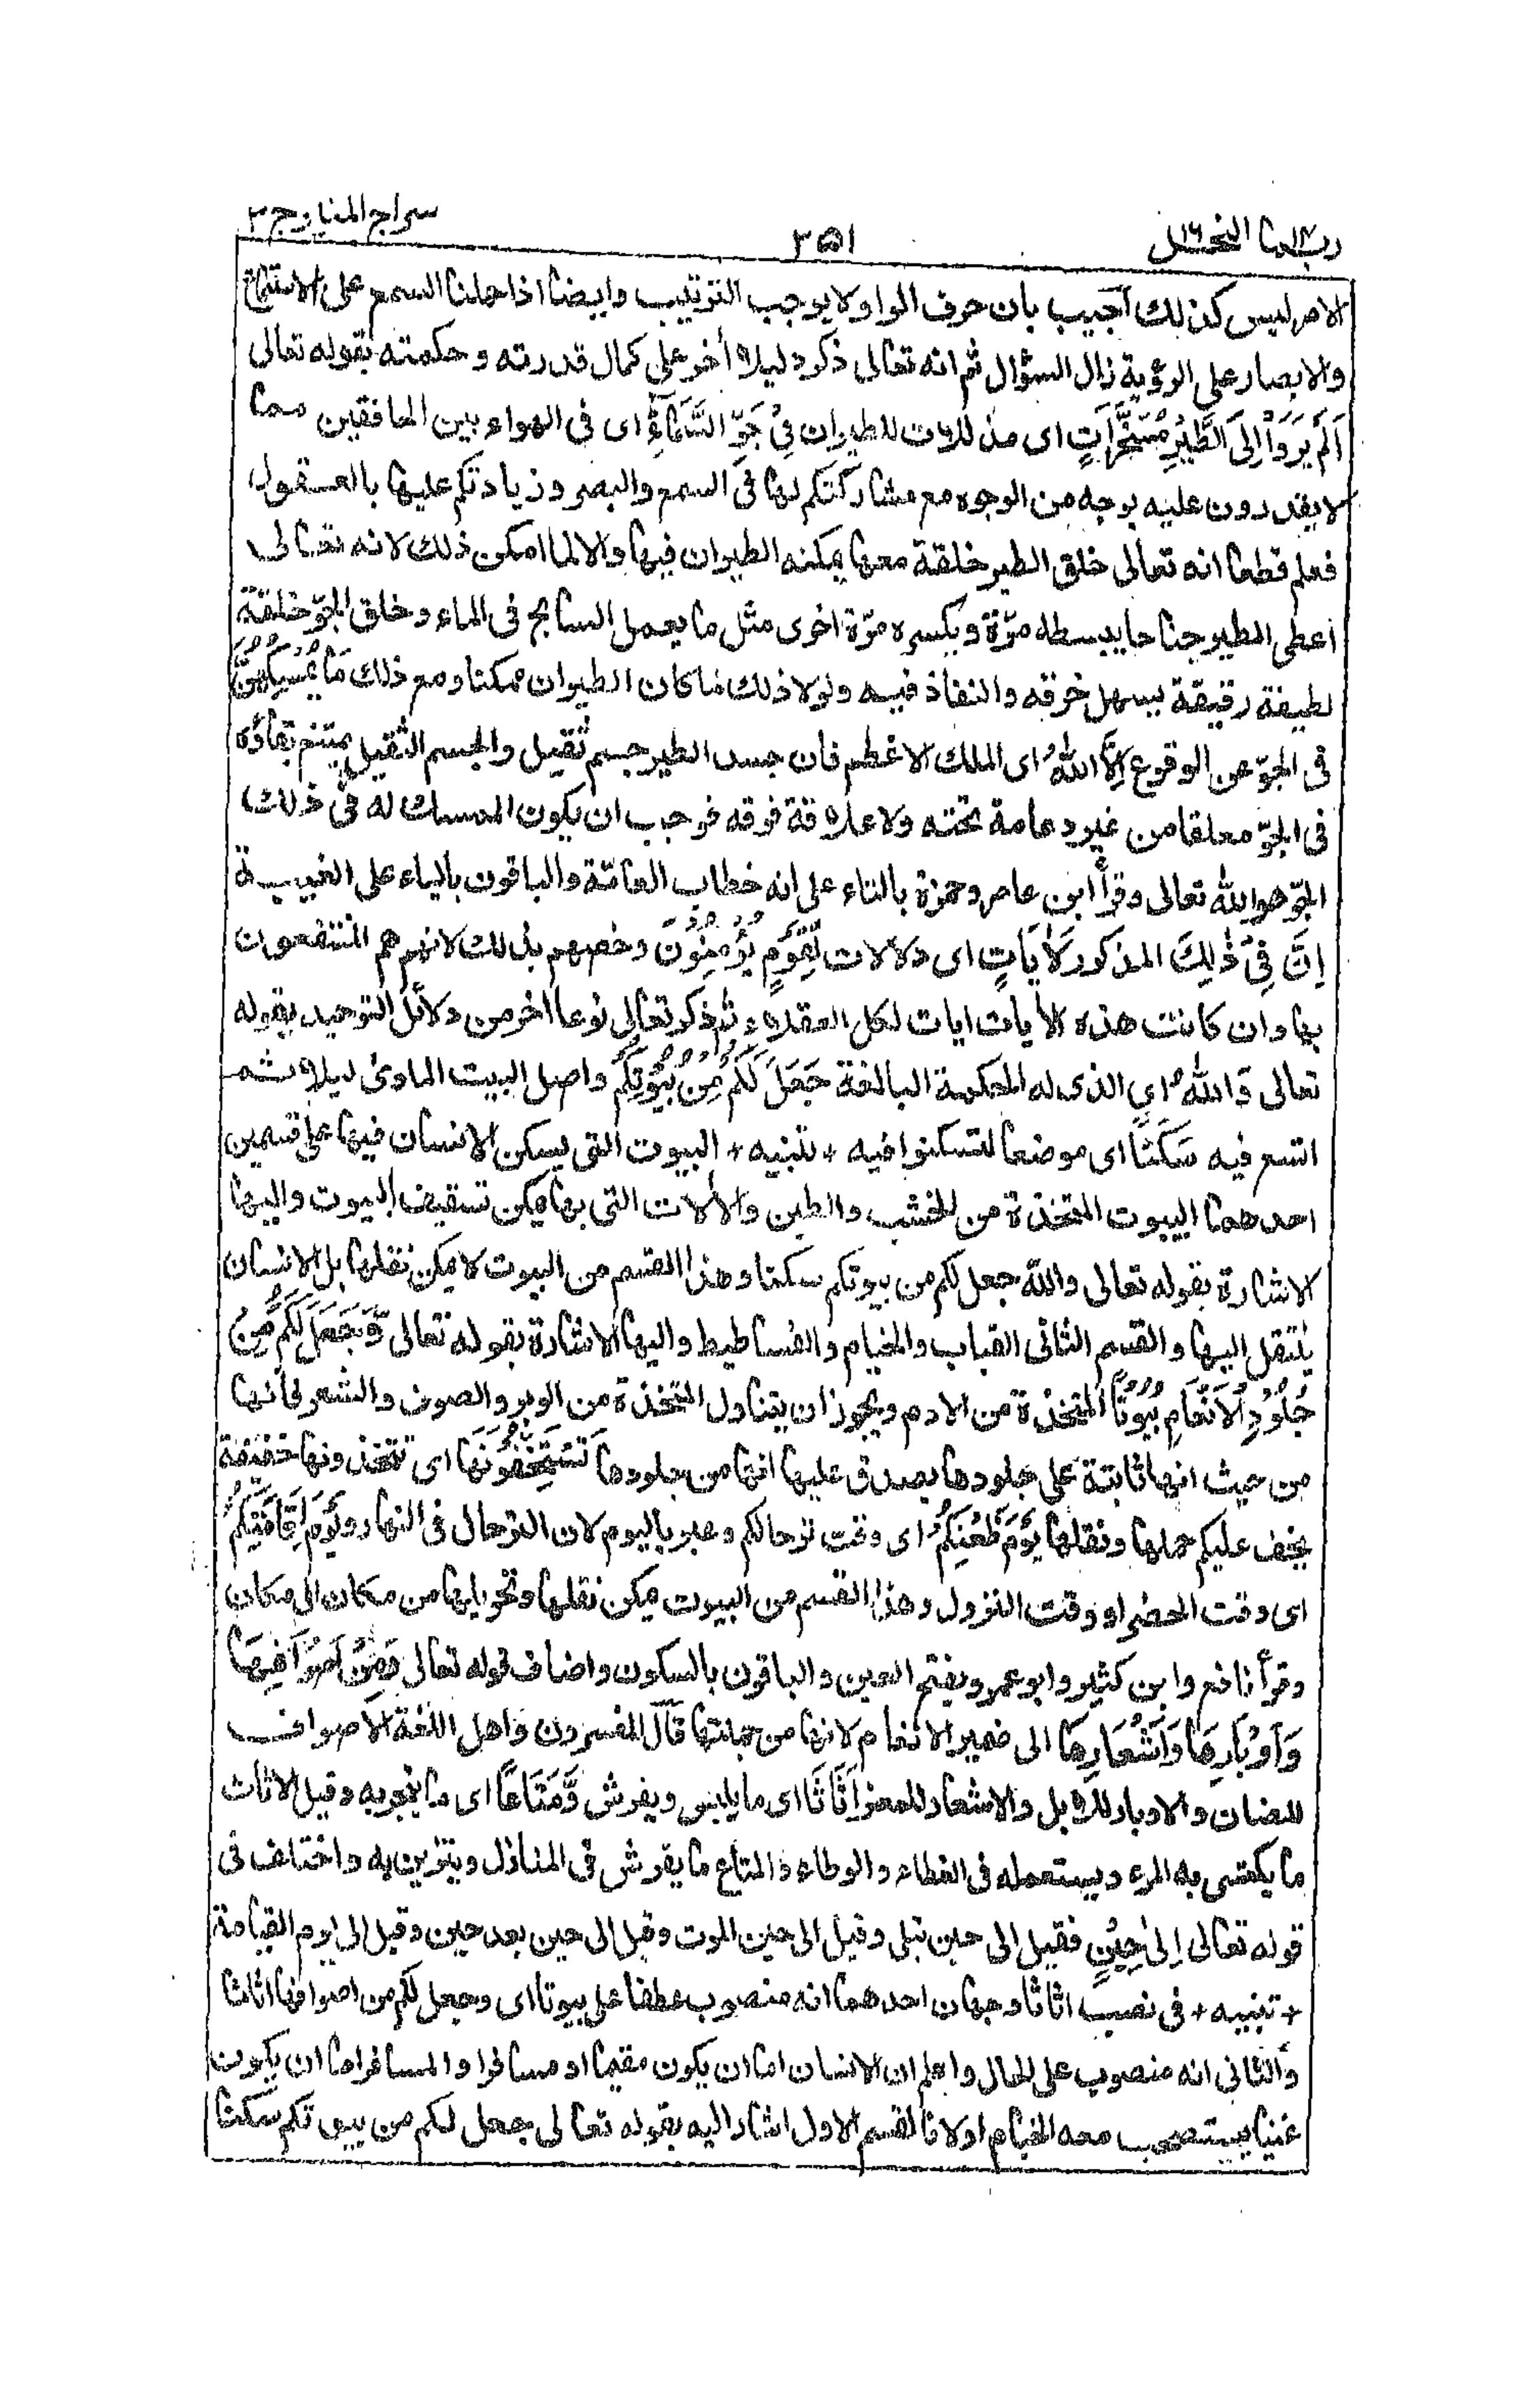 ربما ١٤ النحل ١٦
٣٥١
سراج المنير ج ٢
الامر ليس كذلك أجيب بان حرف الواو لا يوجب الترتيب وايضا اذا حملنا السمع على الاستماع
والابصار على الرؤية زال السؤال ثم انه تعالى ذكر دليلا أخر على كمال قدرته وحكمته بقوله تعالى
اَلَمْ يَرَوْا اِلَى الطَّيْرِ مُسَخَّرَاتٍ اى مذللات للطيران فِيْ جَوِّ السَّمَاءِ اى فى الهواء بين الخافقين مما
لا يقدرون عليه بوجه من الوجوه مع مشاركتكم لها فى السمع والبصر وزيادتكم عليها بالعقول
فعلم قطعا انه تعالى خلق الطير خلقة معها يمكنه الطيران فيها والا لما امكن ذلك لانه تعالى
اعطى الطير جناحا يبسطه مرّة ويكسره مرّة اخرى مثل ما يعمل السابح فى الماء وخلق الجوّ خلقة
لطيفة رقيقة يسهل خرقه والنفاذ فيه ولولا ذلك لما كان الطيران ممكنا ومع ذلك مَا يُمْسِكُهُنَّ
فى الجوّ عن الوقوع اِلَّا اللّٰهُ اى الملك الاعظم فان جسد الطير جسم ثقيل والجسم الثقيل يمتنع بقاؤه
فى الجوّ معلقا من غير دعامة تحته ولا علاقة فوقه فوجب ان يكون الممسك له فى ذلك
الجوّ هو الله تعالى وقرأ ابن عامر وحمزة بالتاء على انه خطاب العامّة والباقون بالياء على الغيبة
اِنَّ فِيْ ذٰلِكَ المذكور لَاٰيَاتٍ اى دلالات لِقَوْمٍ يُؤْمِنُوْنَ وخصهم بذلك لانهم هم المنتفعون
بها وان كانت هذه الأيات ايات لكل العقلاء ثم ذكر تعالى نوعا أخر من دلائل التوحيد بقوله
تعالى وَاللّٰهُ اى الذى له الحكمة البالغة جَعَلَ لَكُمْ مِنْ بُيُوْتِكُمْ واصل البيت الماوى ليلا ثم
اتسع فيه سَكَنًا اى موضعا لتسكنوا فيه + تنبيه + البيوت التى يسكن الانسان فيها على قسمين
احدهما البيوت المتخذة من الخشب والطين والألات التى بها يمكن تسقيف البيوت واليها
الاشارة بقوله تعالى والله جعل لكم من بيوتكم سكنا وهذا القسم من البيوت لا يمكن نقلها بل الانسان
ينتقل اليها والقسم الثانى القباب والخيام والفساطيط واليها الاشارة بقوله تعالى وَّجَعَلَ لَكُمْ مِّنْ
جُلُوْدِ الْاَنْعَامِ بُيُوْتًا المتخذة من الادم ويجوز ان يتناول المتخذة من الوبر والصوف والشعر فانها
من حيث انها ثابتة على جلودها يصدق عليها انها من جلودها تَسْتَخِفُّوْنَهَا اى تتخذونها خفيفة
يخف عليكم حملها ونقلها يَوْمَ ظَعْنِكُمْ اى وقت ترحالكم وعبر باليوم لان الترحال فى النهار وَيَوْمَ اِقَامَتِكُمْ
اى وقت الحضر او وقت النزول وهذا القسم من البيوت يمكن نقلها وتحويلها من مكان الى مكان
وقرأ نافع وابن كثير وابو عمرو بفتح العين والباقون بالسكون واضاف قوله تعالى وَمِنْ اَصْوَافِهَا
وَاَوْبَارِهَا وَاَشْعَارِهَا الى ضمير الانعام لانها من جملتها قال المفسرون واهل اللغة الاصواف
للضان والاوبار للابل والاشعار للمعز اَثَاثًا اى ما يلبس ويفرش وَّمَتَاعًا اى ما يتجر به وقيل الاثاث
ما يكتسى به المرء ويستعمله فى الغطاء والوطاء والمتاع ما يفرش فى المنازل ويتزين به واختلف فى
قوله تعالى اِلٰى حِيْنٍ فقيل الى حين تبلى وقيل الى حين الموت وقيل الى حين بعد حين وقيل الى يوم القيامة
+ تنبيه + فى نصب اثاثا وجهان احدهما انه منصوب عطفا على بيوتا اى وجعل لكم من اصوافها اثاثا
والثانى انه منصوب على الحال واعلم ان الانسان اما ان يكون مقيما او مسافرا والمسافر اما ان يكون
غنيا يستصحب معه الخيام اولا فالقسم الاول اشار اليه بقوله تعالى جعل لكم من بيوتكم سكنا